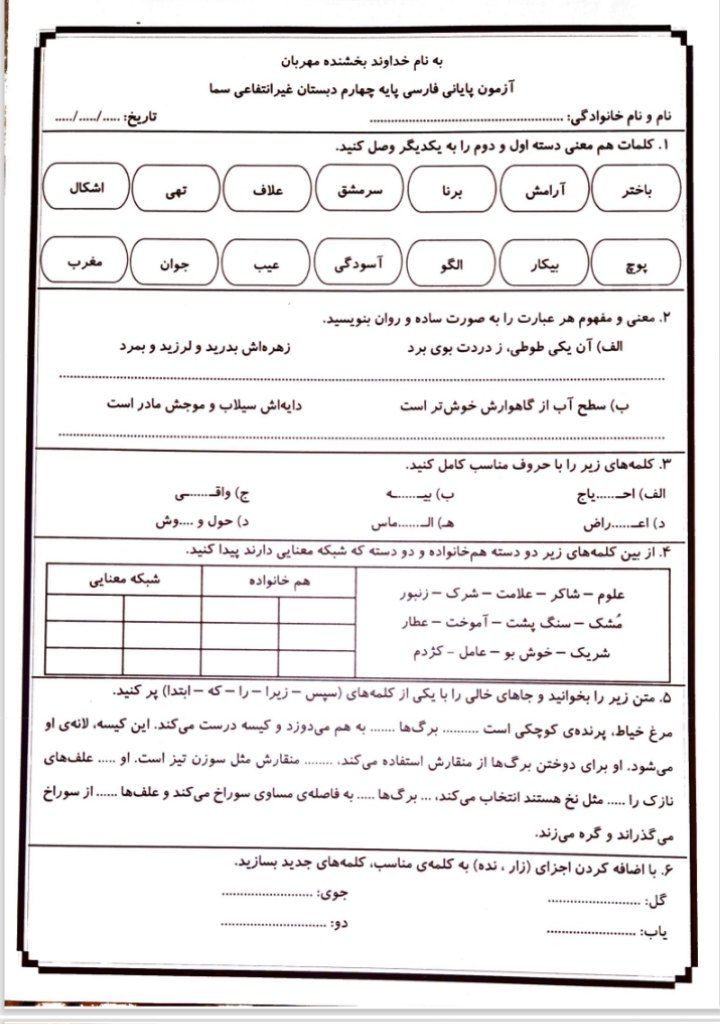 به نام خداوند بخشنده مهربان
آزمون پایانی فارسی پایه چهارم دبستان غیرانتفاعی سما
نام و نام خانوادگی: .................................................. تاریخ: ...../...../.....
۱. کلمات هم معنی دسته اول و دوم را به یکدیگر وصل کنید.
باختر آرامش برنا سرمشق علاف تهی اشکال
پوچ بیکار الگو آسودگی عیب جوان مغرب
۲. معنی و مفهوم هر عبارت را به صورت ساده و روان بنویسید.
الف) آن یکی طوطی، ز دردت بوی برد زهره‌اش بدرید و لرزید و بمرد
ب) سطح آب از گاهوارش خوش‌تر است دایه‌اش سیلاب و موجش مادر است
۳. کلمه‌های زیر را با حروف مناسب کامل کنید.
الف) احـ......یاج ب) بیـ......ـه ج) واقـ......ـی
د) اعـ.....راض هـ) الـ.......ماس د) حول و ....وش
۴. از بین کلمه‌های زیر دو دسته هم‌خانواده و دو دسته که شبکه معنایی دارند پیدا کنید.
علوم – شاکر – علامت – شرک – زنبور هم خانواده شبکه معنایی
مُشک – سنگ پشت – آموخت – عطار
شریک – خوش بو – عامل – کژدم
۵. متن زیر را بخوانید و جاهای خالی را با یکی از کلمه‌های (سپس – زیرا – را – که – ابتدا) پر کنید.
مرغ خیاط، پرنده‌ی کوچکی است .......... برگ‌ها ....... به هم می‌دوزد و کیسه درست می‌کند. این کیسه، لانه‌ی او
می‌شود. او برای دوختن برگ‌ها از منقارش استفاده می‌کند، ........ منقارش مثل سوزن تیز است. او ..... علف‌های
نازک را ..... مثل نخ هستند انتخاب می‌کند، ... برگ‌ها ..... به فاصله‌ی مساوی سوراخ می‌کند و علف‌ها ...... از سوراخ
می‌گذراند و گره می‌زند.
۶. با اضافه کردن اجزای (زار ، نده) به کلمه‌ی مناسب، کلمه‌های جدید بسازید.
گل: ........................ جوی: ........................
یاب: ........................ دو: ............................